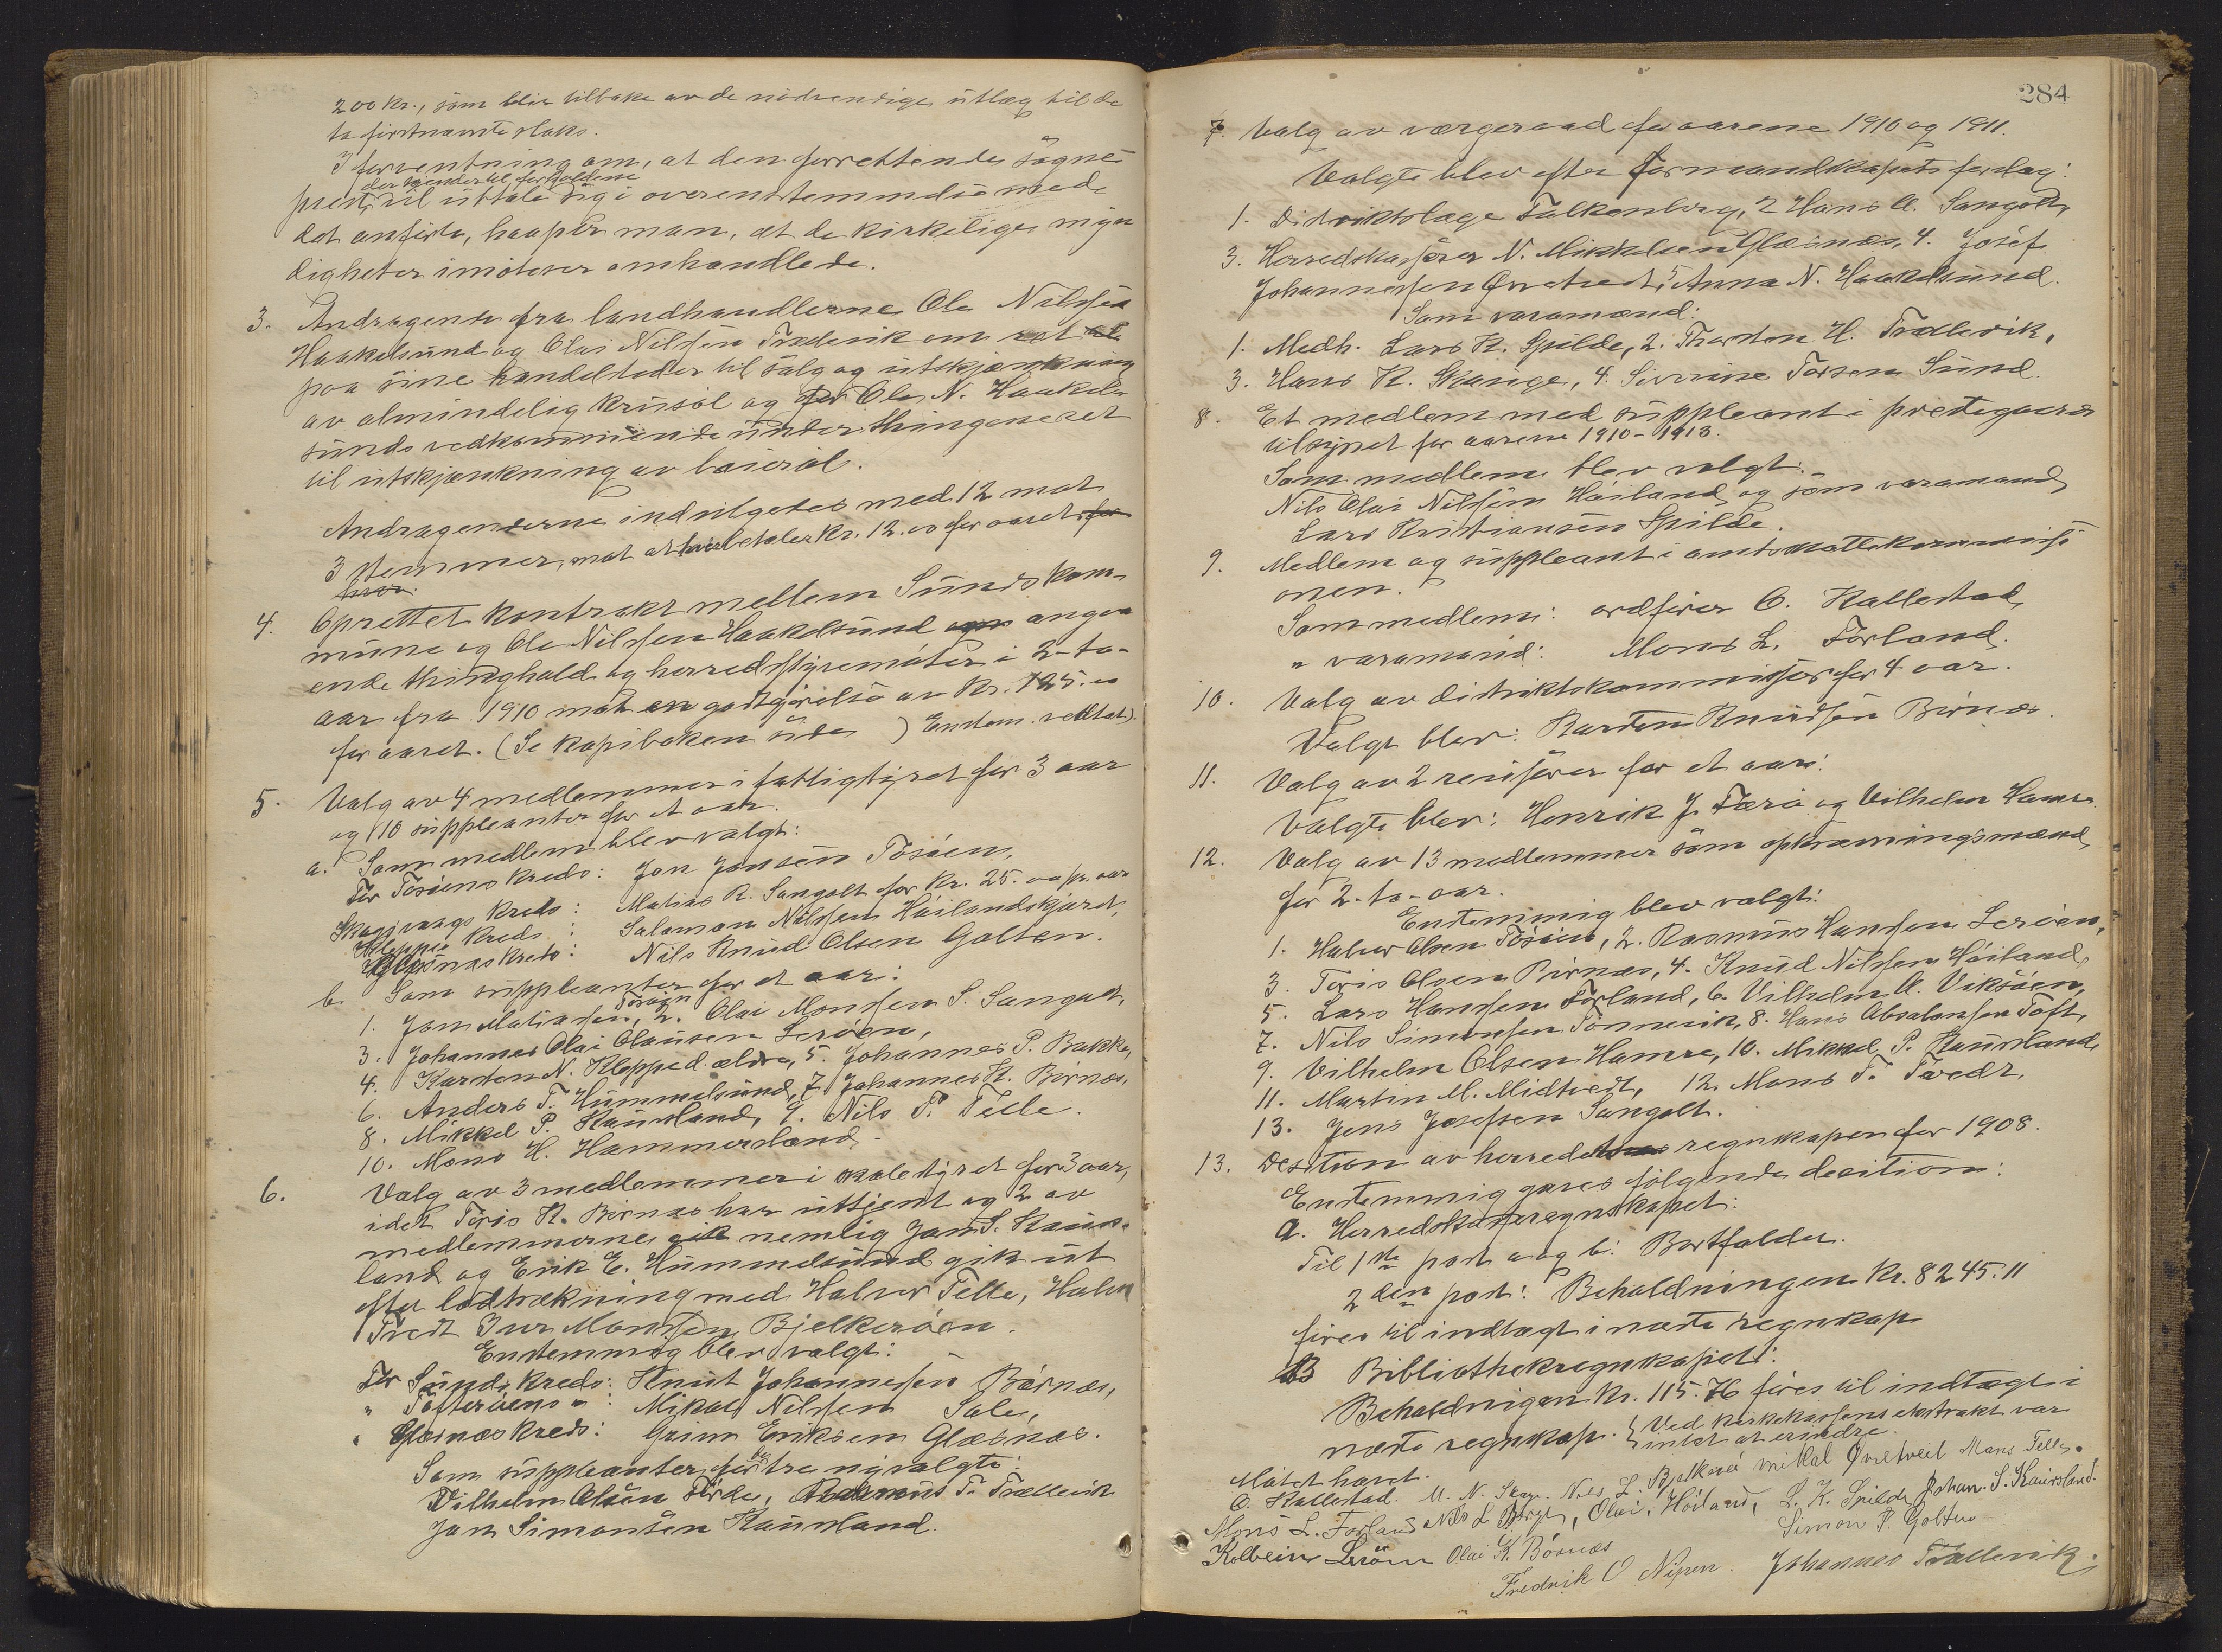 200 kr., som blir tilbake av de nødvendige utlæg til de
to førstnævnte slaks.
I forventning om, at den forrettende sogne-
der kjender til forholdene
prest, vil uttale sig i overensstemmelse med
det anførte, haaper man, at de kirkelige myn
digheter imøteser omhandlede.
3. Andragende fra landhandlerne Ole Nilssen
Haakelsund og Olai Nilssen Trællevik om ret
paa sine handelsteder til salg og utskjænkning
av almindelig krusøl og for Ole N. Haakels-
sunds vedkommende under thingene ret
til utskjænkning av baierøl.
Andragenderne indvilgedes med 12 mot
3 stemmer, mot at hver betaler kr. 12.00 for aaret for
hver.
4. Oprettet kontrakt mellem Sunds kom-
mune og Ole Nilssen Haakelsund angaa
ende thinghold og herredsstyremøter i 2-to-
aar fra 1910 mot en godtgjørelse av kr. 125.00
for aaret. (Se kopiboken side ) Enstem. vedtat).
5. Valg av 4 medlemmer i fattigstyret for 3 aar
og 10 suppleanter for et aar.
a. Som medlem blev valgt:
For Tøsøens kreds: Jon Jansen Tøsøen,
Skogsvaags kreds: Matias R. Sangolt for kr. 25.00 pr. aar
Kleppe kreds: Salamon Nilssen Høilandskjæret,
Glesnæs kreds: Nils Knud Olsen Golten.
b. Som suppleanter for et aar:
1. Jon Matiassen Tøsøen, 2. Olai Monssen S. Sangolt,
3. Johannes Olai Olausen Lerøen,
4. Karsten N. Kleppe d. ældre, 5. Johannes P. Bakke,
6. Anders T. Hummelsund, 7. Johannes K. Bornæs,
8. Mikkel P. Kausland, 9. Nils T. Telle.
10. Mons H. Hammersland.
6. Valg av 3 medlemmer i skolestyret for 3 aar,
idet Tøris K. Børnæs har uttjent og 2 av
medlemmerne gik nemlig Jan S. Kaus-
land og Erik E. Hummelsund gik ut
efter lodtrækning med Halvor Telle, Halvor
Tvedt Iver Monssen Bjelkerøen.
Enstemmig blev valgt:
For Sunds kreds: Knut Johannesen Børnæs,
" Tofterøens ": Mikal Nilssen Sale,
" Glæsnæs kreds: Grim Eriksen Glæsnæs.
Som suppleanter for de tre nyvalgte:
Vilhelm Olsen Førde, Rasmus T. Trællevik
Jan Simonsen Kausland.
284
7. Valg av værgeraad for aarene 1910 og 1911.
Valgte blev efter formandskapets forslag:
1. Distriktslæge Falkenberg, 2 Hans A. Sangolt,
3. Herredskasserer N. Mikkelsen Glæsnæs, 4. Josef
Johannessen Øvretvedt, 5 Anna N. Haakelsund.
Som varamænd:
1. Medh. Lars K. Spilde, 2. Thorsten H. Trællevik,
3. Hans K. Skauge, 4. Siverine Torsen Sund.
8. Et medlem med suppleant i prestegaards
tilsynet for aarene 1910-1913.
Som medlem blev valgt:
Nils Olai Nilssen Høiland og som varamand
Lars Kristiansen Spilde.
9. Medlem og suppleant i amtsskattekommissi
onen.
Som medlem: ordfører O. Kallestad,
" varamand: Mons L. Førland.
10. Valg av distriktskommissær for 4 aar.
Valgt blev: Karsten Knudsen Børnæs.
11. Valg av 2 revisorer for et aar:
Valgte blev: Henrik J. Tærø og Vilhelm Hamre.
12. Valg av 13 medlemmer som opkrævningsmænd
for 2-to-aar.
Enstemmig blev valgt:
1. Halvor Olsen Tøsøen, 2. Rasmus Hansen Lerøen,
3. Tøris Olsen Børnæs, 4. Knud Nilssen Høiland,
5. Lars Hanssen Førland, 6. Vilhelm A. Viksøen,
7. Nils Simonsen Tønnevik, 8. Hans Absalonsen Toft,
9. Vilhelm Olsen Hamre, 10. Mikkel P. Kausland,
11. Martin M. Midtvedt, 12. Mons T. Tvedt,
13. Jens Josefsen Sangolt.
13. Desition av herreds regnskapen for 1908.
Enstemmig gaves følgende desition:
a. Herredskasseregnskapet:
Til 1ste post a og b: Bortfalder.
2den post: Beholdningen kr. 8245.11
føres til indtægt i næste regnskap
B Bibliothekregnskapet:
Beholdnigen kr. 115.76 føres til indtægt i
næste regnskap. { Ved kirkekassens ekstrakt var
intet at erindre.
Møtet hævet.
O. Kallestad. M. N. Skage. Nils L. Bjelkerø Mikal Øvretveit Mons Telle.
Mons L. Førland Nils L Berge, Olai Høiland, L. K. Spilde Johan. S. Kausland.
Kolbein Lerøen Olai K. Børnæs Simon P. Golten
Fredrik O Nipen. Johannes Trællevik.